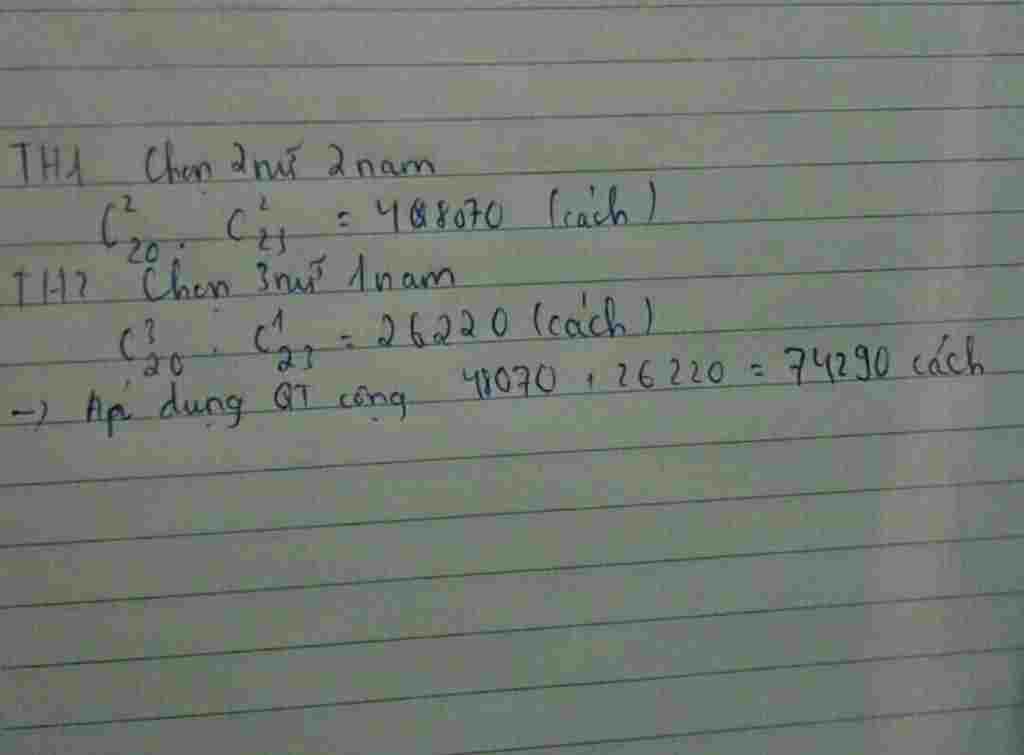 TH1 Chọn 2 nữ 2 nam
C²₂₀ . C²₂₃ = 48070 (cách)
TH2 Chọn 3 nữ 1 nam
C³₂₀ . C¹₂₃ = 26220 (cách)
→ Áp dụng QT cộng 48070 + 26220 = 74290 cách